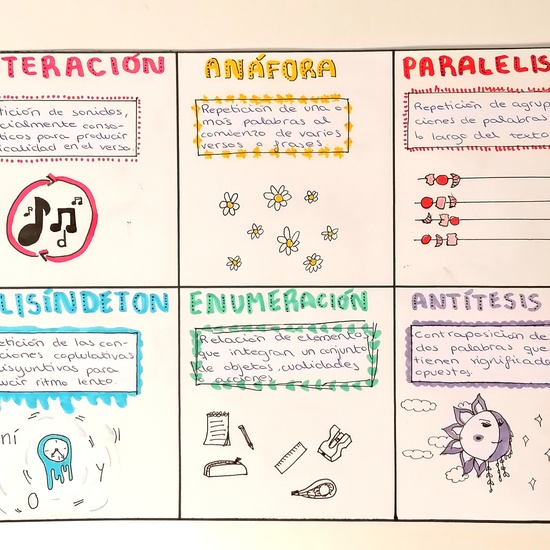 TERACIÓN
tición de sonidos,
cialmente conso-
ticos para producir
icalidad en el verso.
ANÁFORA
Repetición de una o
más palabras al
comienzo de varios
versos o frases
PARALELIS
Repetición de agrup
ciones de palabras
lo largo del texto
LISÍNDETON
etición de las con-
ciones coplulativas
disyuntivas para
ucir ritmo lento.
ní
Y
O
ENUMERACIÓN
Relación de elementos
que integran un conjunto
de objetos, cualidades
acciones
ANTÍTESIS
Contraposición de
dos palabras que
tienen significado
opuestos.